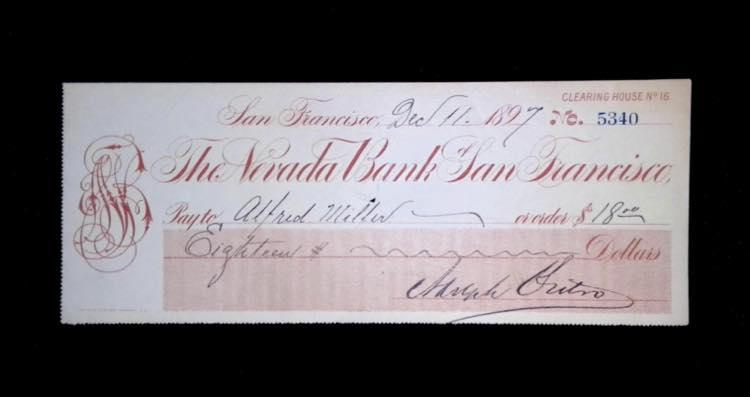 CLEARING HOUSE No 16
San Francisco, Dec 11. 1897 No. 5340
The Nevada Bank of San Francisco,
Pay to Alfred Miller or order $ 18.00
Eighteen $ Dollars
Adolph Sutro